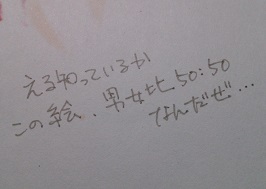 える知っているか
この絵、男女比50:50
なんだぜ…